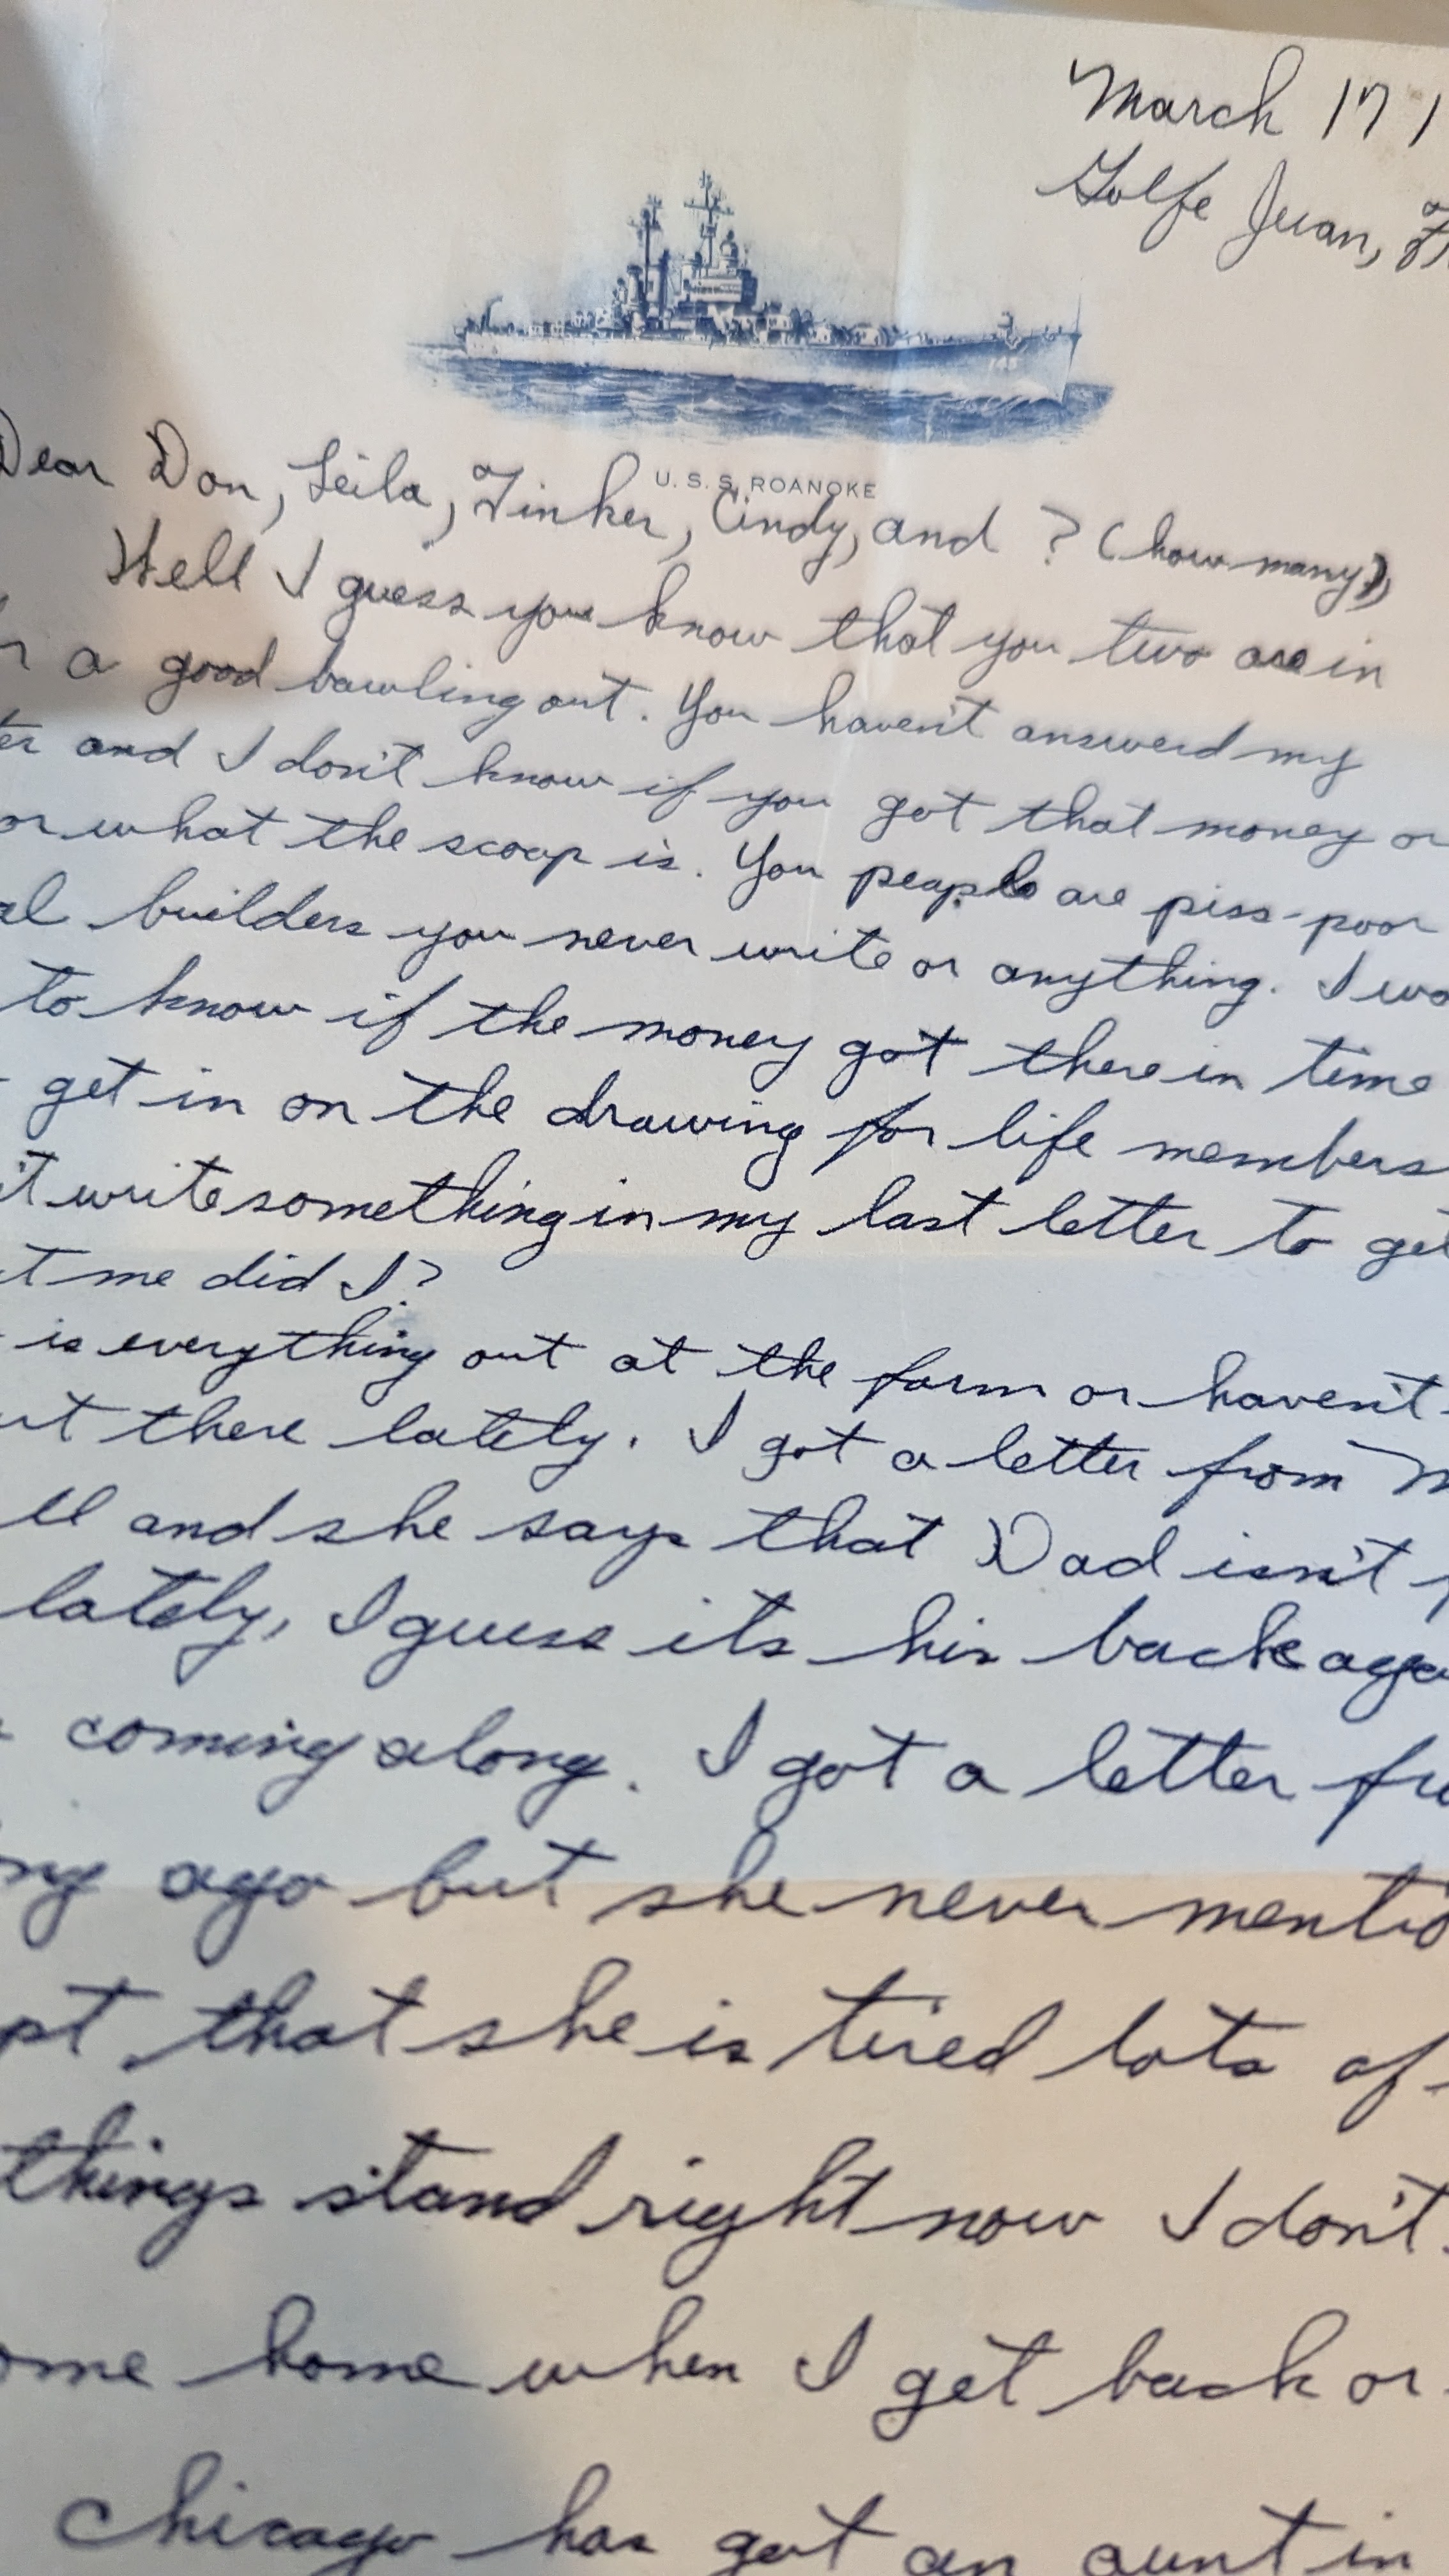 March 17 1
Golfe Juan, Fr
145
U.S.S. ROANOKE
Dear Don, Leila, Tinker, Cindy, and ? (how many?),
Well I guess you know that you two are in
r a good bawling out. You haven't answerd my
er and I don't know if you got that money or
or what the scoop is. You people are piss-poor
al builders you never write or anything. I wo
to know if the money got there in time
get in on the drawing for life members
't write something in my last letter to get
t me did I?
is everything out at the farm or haven't
ut there lately. I got a letter from M
ell and she says that Dad isn't f
lately, I guess its his back aga
coming along. I got a letter fro
ong ago but she never mentio
pt that she is tired lots of
things stand right now I don't
ome home when I get back or
Chicago has got an aunt in